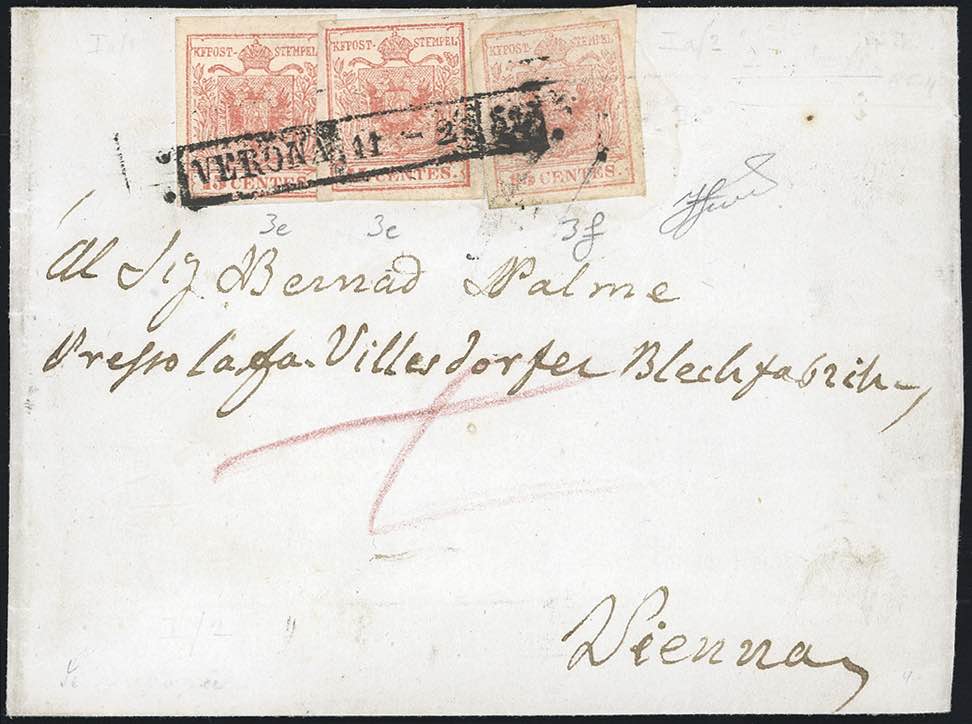 KKPOST-STEMPEL KKPOST-STEMPEL KKPOST-STEMPEL
VERONA 11 - 2
15 CENTES. 15 CENTES. 15 CENTES.
3e 3e 3f
Al Sig Bernad Palme
Presso la fa. Villesdorfer Blechfabrik
Vienna